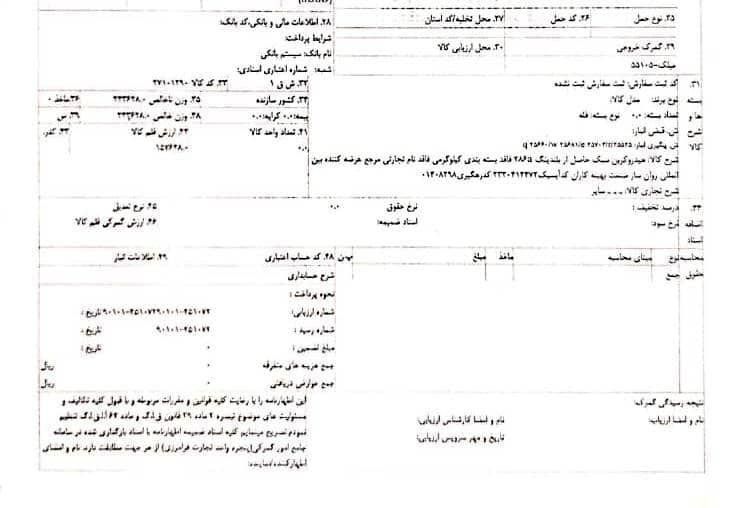 ۲۵. نوع حمل
۲۶. کد حمل
۲۷. محل تخلیه/کد استان
۲۸. اطلاعات مالی و بانکی، کد بانک:
شرایط پرداخت:
۲۹. گمرک خروجی
۳۰. محل ارزیابی کالا
نام بانک: سیستم بانکی
میلک-۵۵۱۰۵
شعبه: شماره اعتباری اسنادی:
۳۱. کد ثبت سفارش: ثبت سفارش ثبت نشده
۳۲. ش ق ۱
۳۳. کد کالا ۲۷۱۰۱۲۹۰
بسته نوع برند: مدل کالا:
۳۴. کشور سازنده
۳۵. وزن ناخالص ۲۴۳۶۲۸.۰
۳۶. ماخذ ۰
ها و تعداد بسته: ۰.۰ نوع بسته: فله
بیمه:۰.۰ کرایه:۰.۰
۳۸. وزن خالص ۲۴۳۶۲۸.۰
۳۹. س
شرح ش. قبض انبار:
۴۱. تعداد واحد کالا
۴۲. ارزش قلم کالا
۴۳. کدر.
کالا ش. پیگیری انبار:
۰.۰
۱۵۷۶۲۸.۰
شرح کالا: هیدروکربن سبک حاصل از بلندینگ ۲۸۶a فاقد بسته بندی کیلوگرمی فاقد نام تجارتی مرجع عرضه کننده بین
المللی روان ساز صنعت بهینه کاران کدآیسیک ۲۳۲۰۴۱۲۴۷۲ کدرهگیری ۰۱۴۰۸۲۹۸
شرح تجاری کالا: ... سایر
۴۴. درصد تخفیف :
نرخ حقوق
۰.۰
۴۵. نوع تعدیل
اضافه نرخ سود:
اسناد ضمیمه:
۴۶. ارزش گمرکی قلم کالا
اسناد:
محاسبه نوع
مبنای محاسبه
ماخذ
مبلغ
۴۸. کد حساب اعتباری
۴۹. اطلاعات انبار
حقوق جمع
شرح حسابداری
نحوه پرداخت :
شماره ارزیابی:
تاریخ :
شماره رسید :
۹۰۱۰۱-۴۵۱۰۷۲
تاریخ:
مبلغ تضمین :
۰
تاریخ:
جمع هزینه های متفرقه
۰
ریال
جمع عوارض دریافتی
۰
ریال
نتیجه رسیدگی گمرک:
این اظهارنامه را با رعایت کلیه قوانین و مقررات مربوطه و با قبول کلیه تکالیف و
نام و امضا ارزیاب:
نام و امضا کارشناس ارزیابی:
مسئولیت های موضوع تبصره ۲ ماده ۲۹ قانون ق.ا.گ و ماده ۶۴ آ.ا.ق.ا.گ تنظیم
تاریخ و مهر سرویس ارزیابی:
نمودم تصریح مینمایم کلیه اسناد ضمیمه اظهارنامه با اسناد بارگذاری شده در سامانه
جامع امور گمرکی(پنجره واحد تجارت فرامرزی) از هر جهت مطابقت دارد. نام و امضای
اظهارکننده/نماینده: